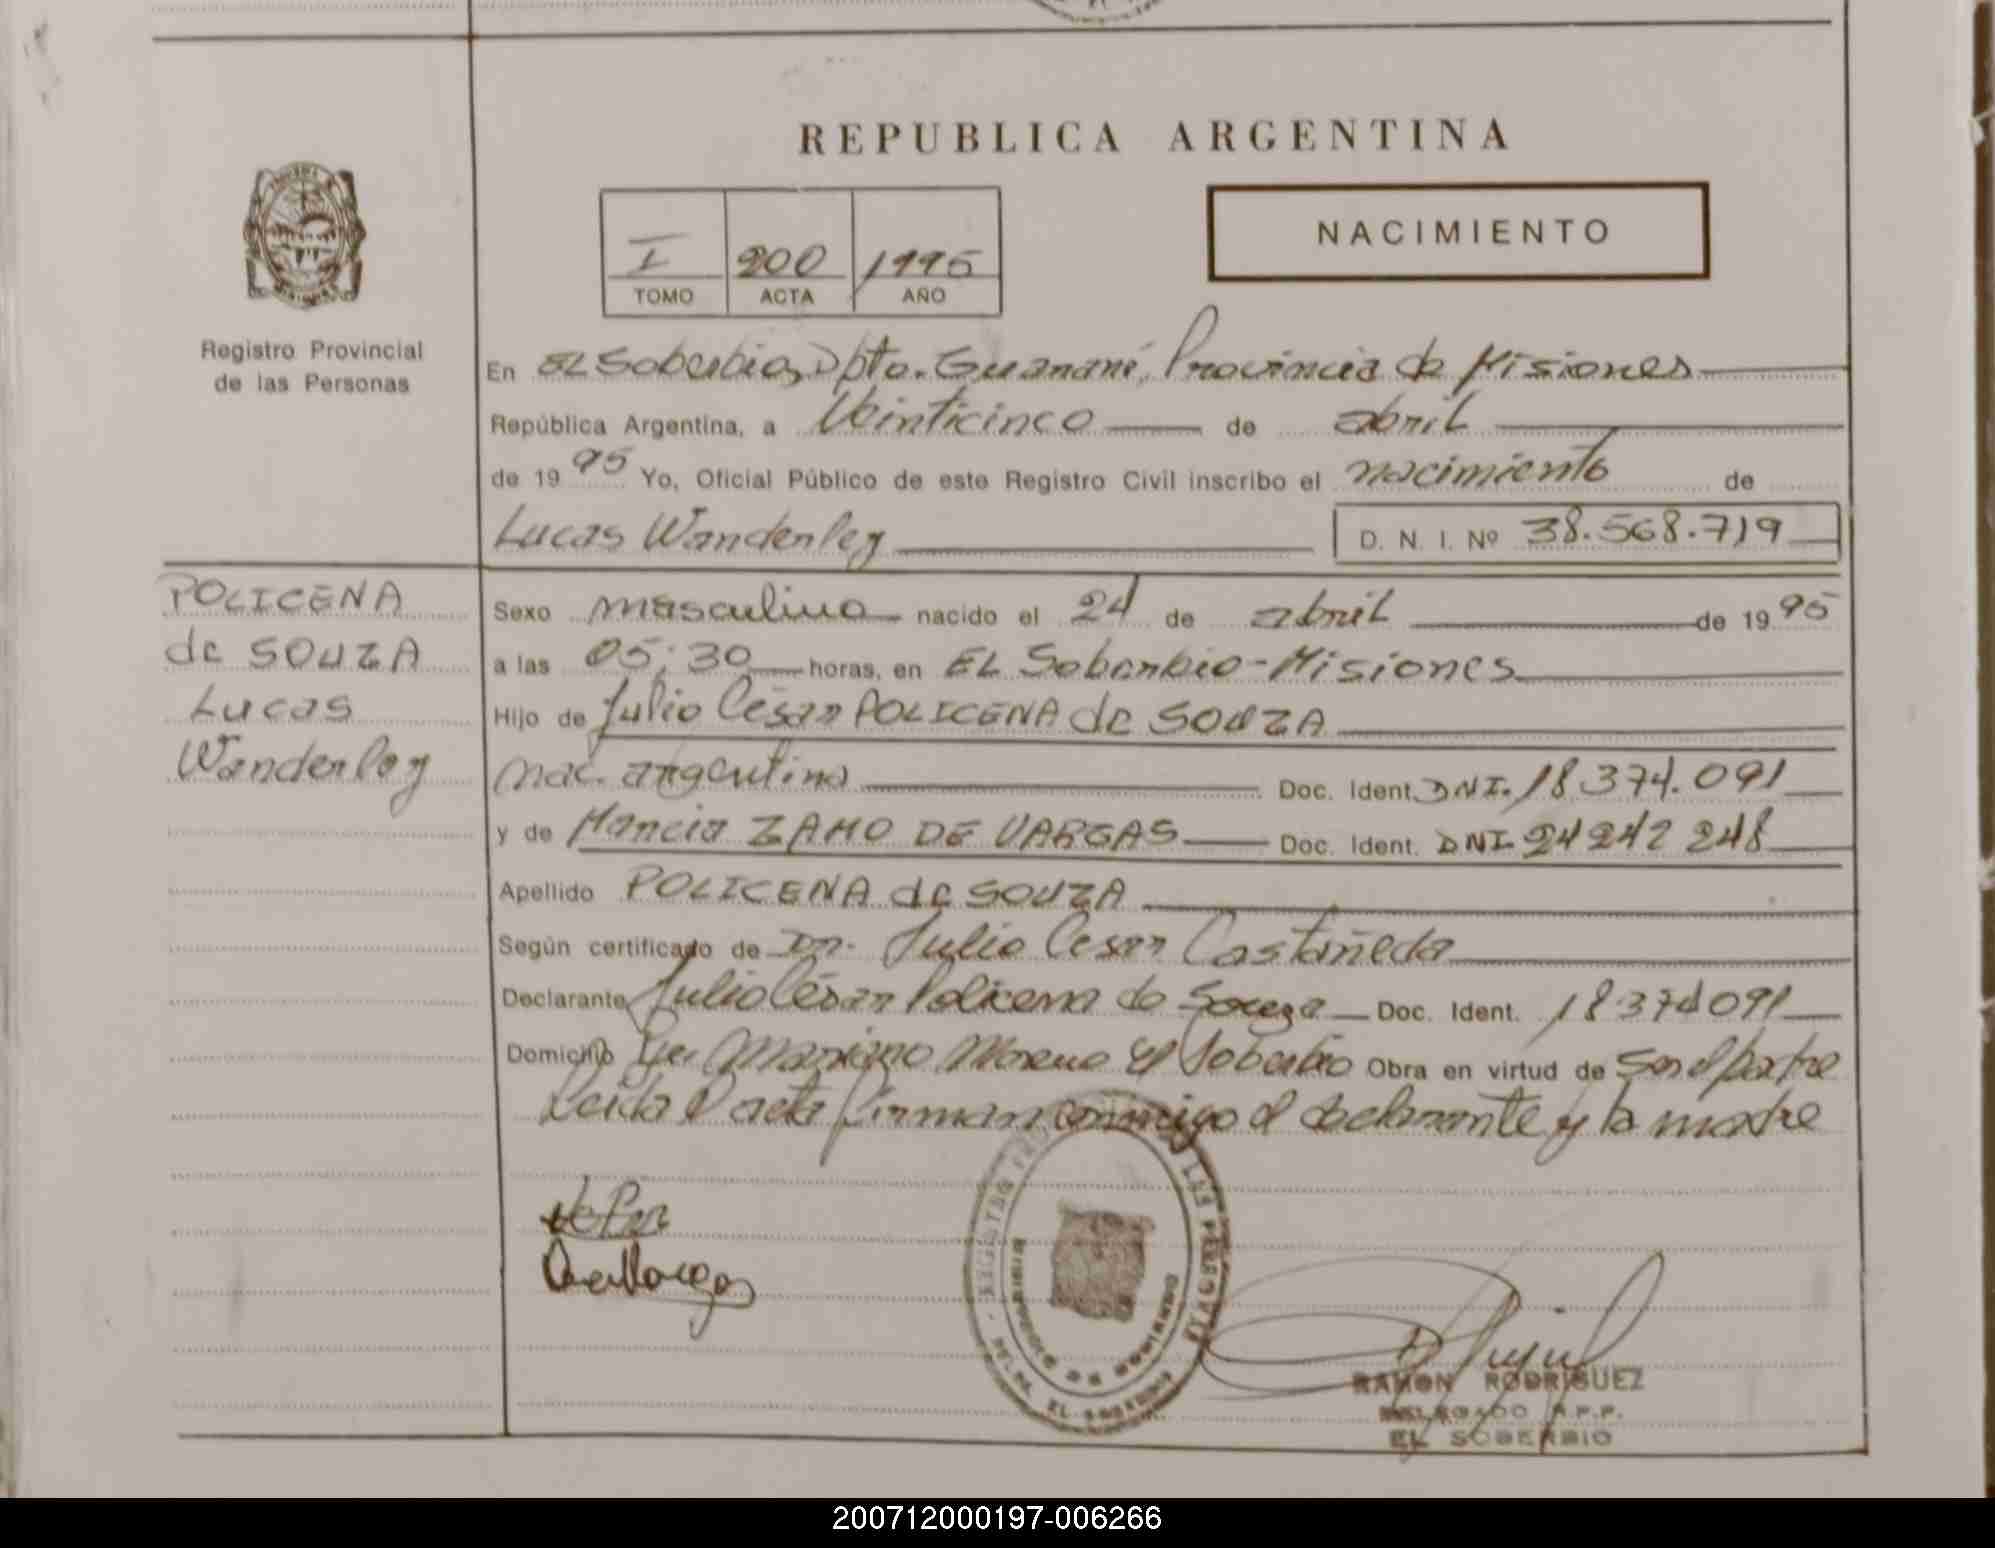 REPUBLICA ARGENTINA
NACIMIENTO
I 200 1995
TOMO ACTA AÑO
Registro Provincial
de las Personas
En EL Soberbio, Dpto. Guaraní, Provincia de Misiones
República Argentina, a Veinticinco de abril
de 19 95 Yo, Oficial Público de este Registro Civil inscribo el nacimiento de
Lucas Wanderley D. N. I. Nº 38.568.719
POLICENA
de SOUZA
Lucas
Wanderley
Sexo masculino nacido el 24 de abril de 19 95
a las 05:30 horas, en EL Soberbio-Misiones
Hijo de Julio César POLICENA de SOUZA
nac. argentina Doc. Ident. DNI. 18.374.091
y de Marcia ZAMO DE VARGAS Doc. Ident. DNI 24242 248
Apellido POLICENA de SOUZA
Según certificado de Dr. Julio Cesar Castañeda
Declarante Julio César Policena de Souza Doc. Ident. 18374091
Domicilio Mariano Moreno El Soberbio Obra en virtud de ser el padre
Leida el acta firman conmigo el declarante y la madre
REGISTRO LAS PERSONAS
EL SOBERBIO
RAMON RODRIGUEZ
DELEGADO R.P.P.
EL SOBERBIO
200712000197-006266